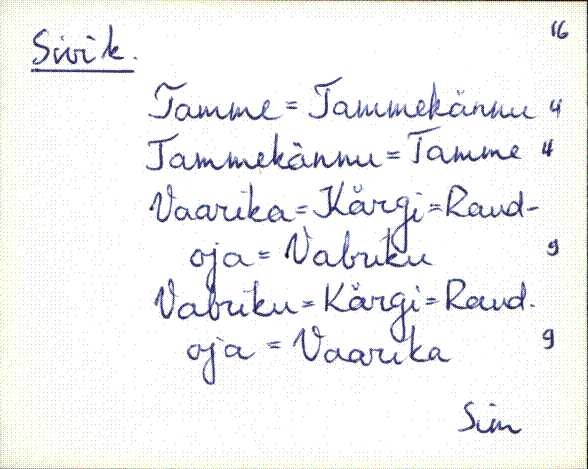 16
Sivik.
Tamme = Tammekännu 4
Tammekännu = Tamme 4
Vaarika = Kärgi = Raud-
oja = Vabriku 9
Vabriku = Kärgi = Raud-
oja = Vaarika 9
Sim